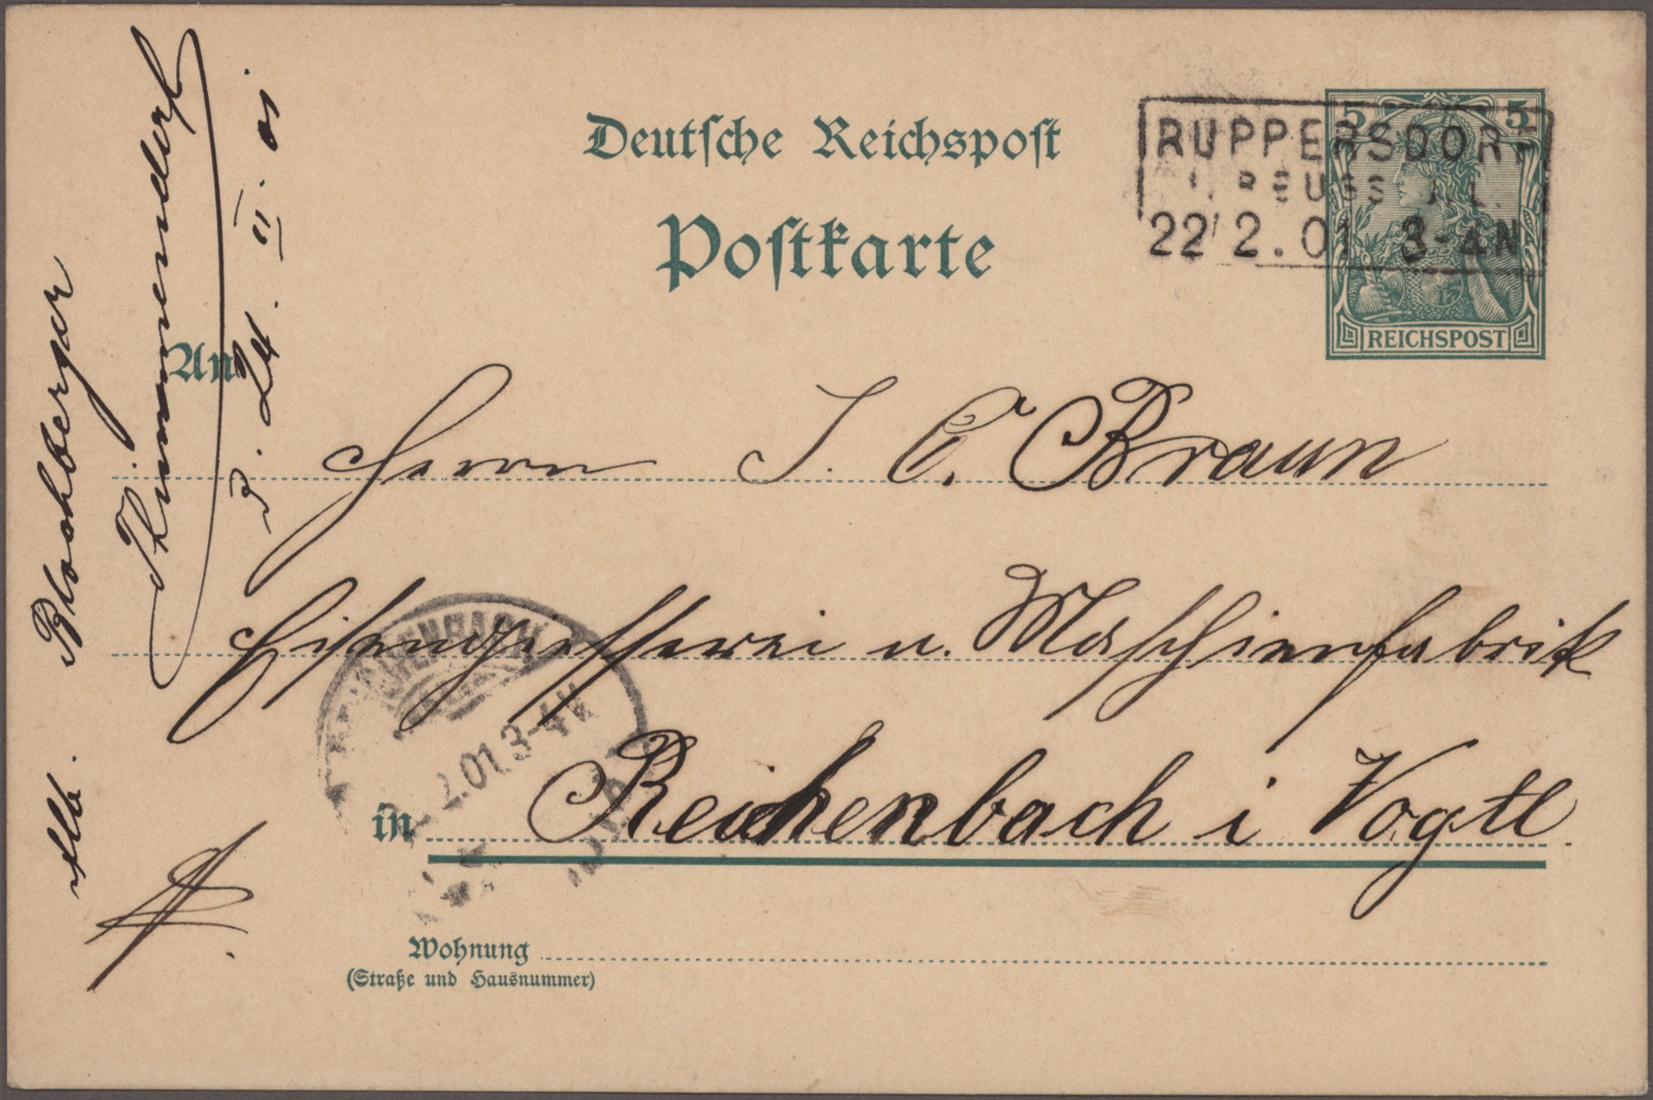 Deutsche Reichspost
Postkarte
5 5
REICHSPOST
RUPPERSDORF
REUSS Ä.L.
22 2.01 3-4N
An
Herrn J. C. Braun
Eisengiesserei u. Maschienfabrik
in Reichenbach i Vogtl
Wohnung
(Straße und Hausnummer)
2.01.3-4N
Thimmendorf
d. 24. II. 01